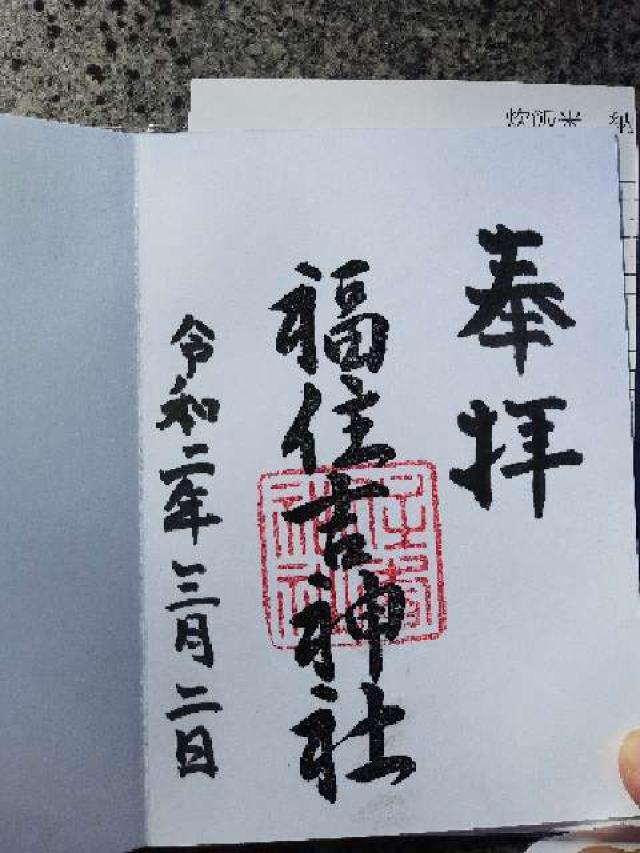 奉拝
福住吉神社
住吉神社
令和二年三月二日
炊飯米